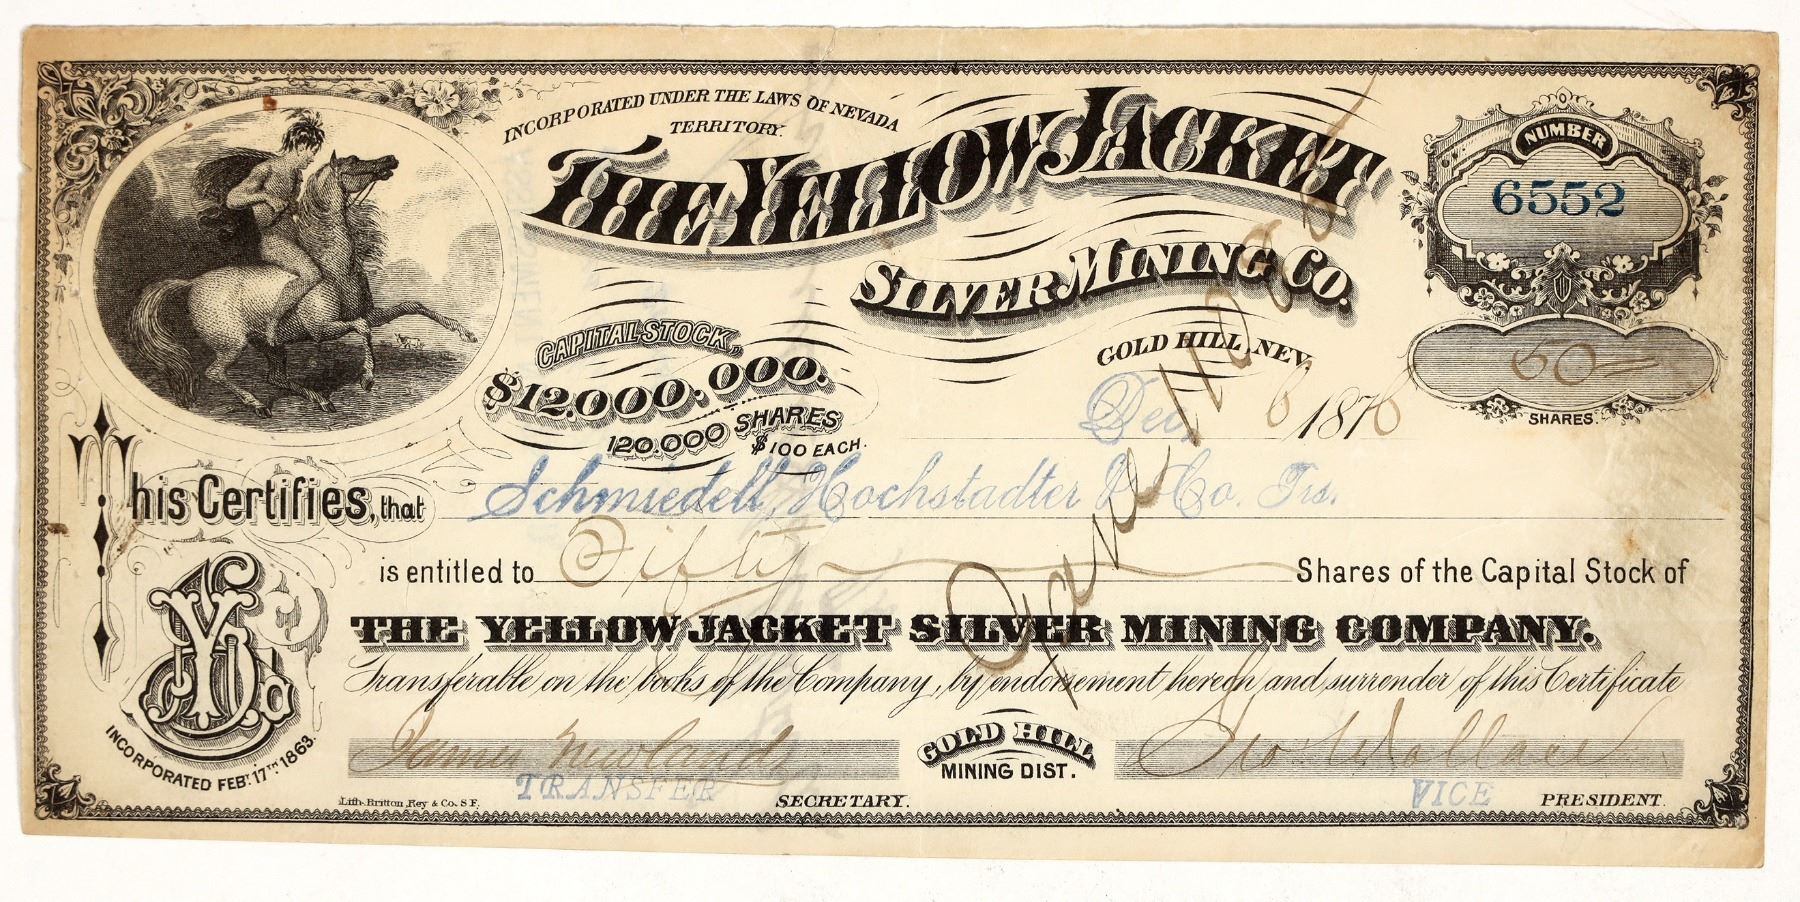 INCORPORATED UNDER THE LAWS OF NEVADA
TERRITORY.
THE YELLOW JACKET
SILVER MINING CO.
GOLD HILL, NEV.
NUMBER
6552
50=
SHARES.
CAPITAL STOCK,
$12.000.000.
120.000 SHARES
$100 EACH.
Dec. 6 1876
This Certifies, that Schmiedell, Hochstadter & Co. Trs.
is entitled to Fifty Shares of the Capital Stock of
THE YELLOW JACKET SILVER MINING COMPANY.
Transferable on the books of the Company, by endorsement hereon and surrender of this Certificate
YJ S M Co
INCORPORATED FEBY. 17TH 1863.
James Newlands
TRANSFER SECRETARY.
GOLD HILL
MINING DIST.
Geo Wallace
VICE PRESIDENT.
Lith. Britton, Rey & Co. S F.
Cancelled